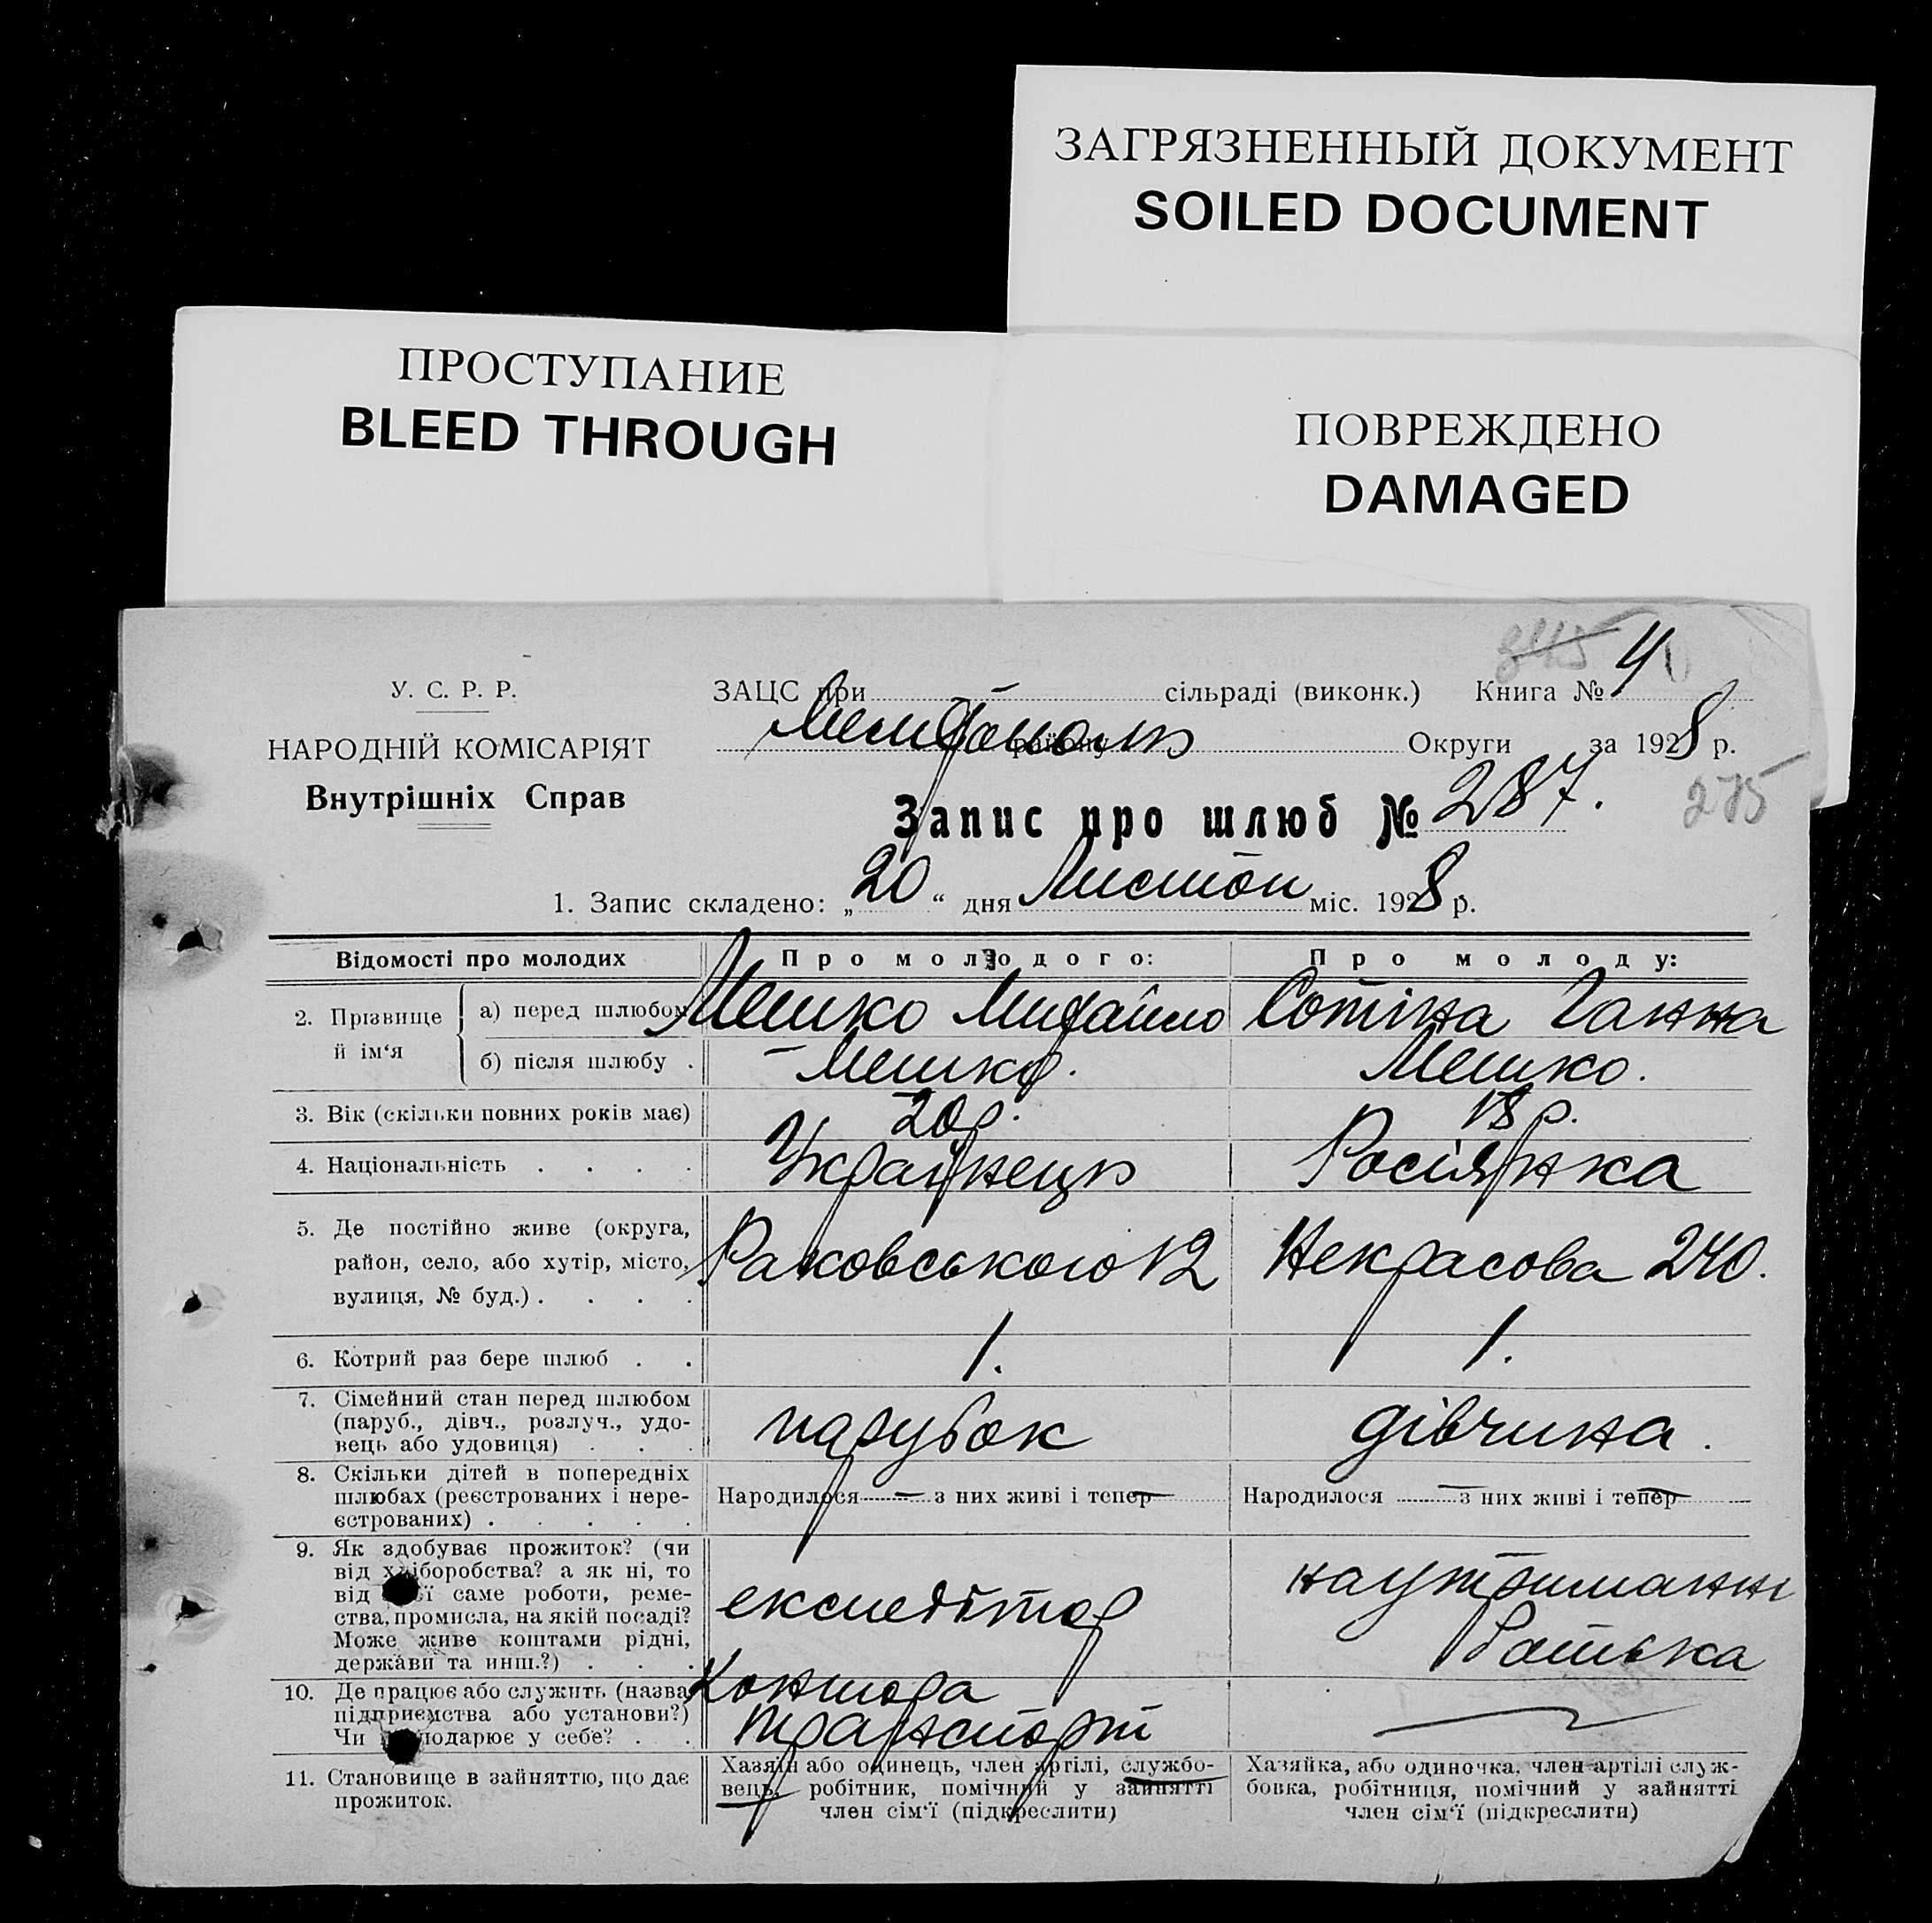 ЗАГРЯЗНЕННЫЙ ДОКУМЕНТ
SOILED DOCUMENT
ПРОСТУПАНИЕ
BLEED THROUGH
ПОВРЕЖДЕНО
DAMAGED
У. С. Р. Р.
НАРОДНІЙ КОМІСАРІЯТ
Внутрішніх Справ
345 4
ЗАЦС при — сільраді (виконк.) Книга №
району Округи за 1928 р.
Запис про шлюб № 287.
275
1. Запис складено: „20“ дня Листоп міс. 1928 р.
Відомості про молодих Про молодого: Про молоду:
2. Прізвище й ім‘я
а) перед шлюбом Мешко Михайло Сотіна Ганна
б) після шлюбу . – Мешко. Мешко.
3. Вік (скільки повних років має) 20 р. 18 р.
4. Національність . . . . Українець Росіянка
5. Де постійно живе (округа,
район, село, або хутір, місто,
вулиця, № буд.) . . . .
Раковського 12 Некрасова 240.
6. Котрий раз бере шлюб . . 1. 1.
7. Сімейний стан перед шлюбом
(паруб., дівч., розлуч., удо-
вець або удовиця) . . .
парубок дівчина.
8. Скільки дітей в попередніх
шлюбах (реєстрованих і нере-
єстрованих) . . . . .
Народилося — з них живі і тепер — Народилося — з них живі і тепер —
9. Як здобуває прожиток? (чи
від хліборобства? а як ні, то
від саме роботи, реме-
ства, промисла, на якій посаді?
Може живе коштами рідні,
держави та инш.?) . . .
експедітор
на утриманні
батька
10. Де працює або служить (назва
підприємства або установи?)
Чи господарює у себе? . .
Контора
транспорт
11. Становище в зайняттю, що дає
прожиток.
Хазяїн або одинець, член артілі, службо-
вець, робітник, помічний у зайнятті
член сім‘ї (підкреслити)
Хазяйка, або одиночка, член артілі служ-
бовка, робітниця, помічний у зайнятті
член сім‘ї (підкреслити)